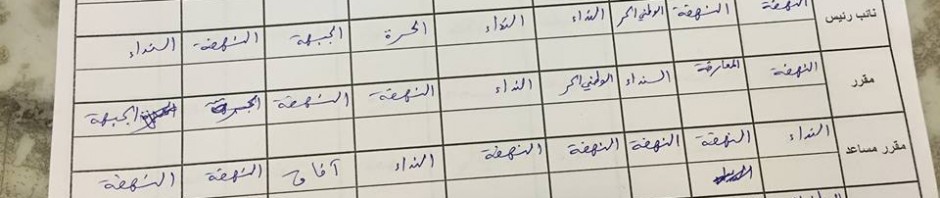 نائب رئيس النهضة النهضة الوطني الحر النداء النداء الحرة الجبهة النهضة النداء
مقرر النهضة المعارضة النداء الوطني الحر النداء النهضة النهضة الجبهة
مقرر مساعد النداء النهضة النهضة النهضة النهضة النداء آفاق النهضة النهضة